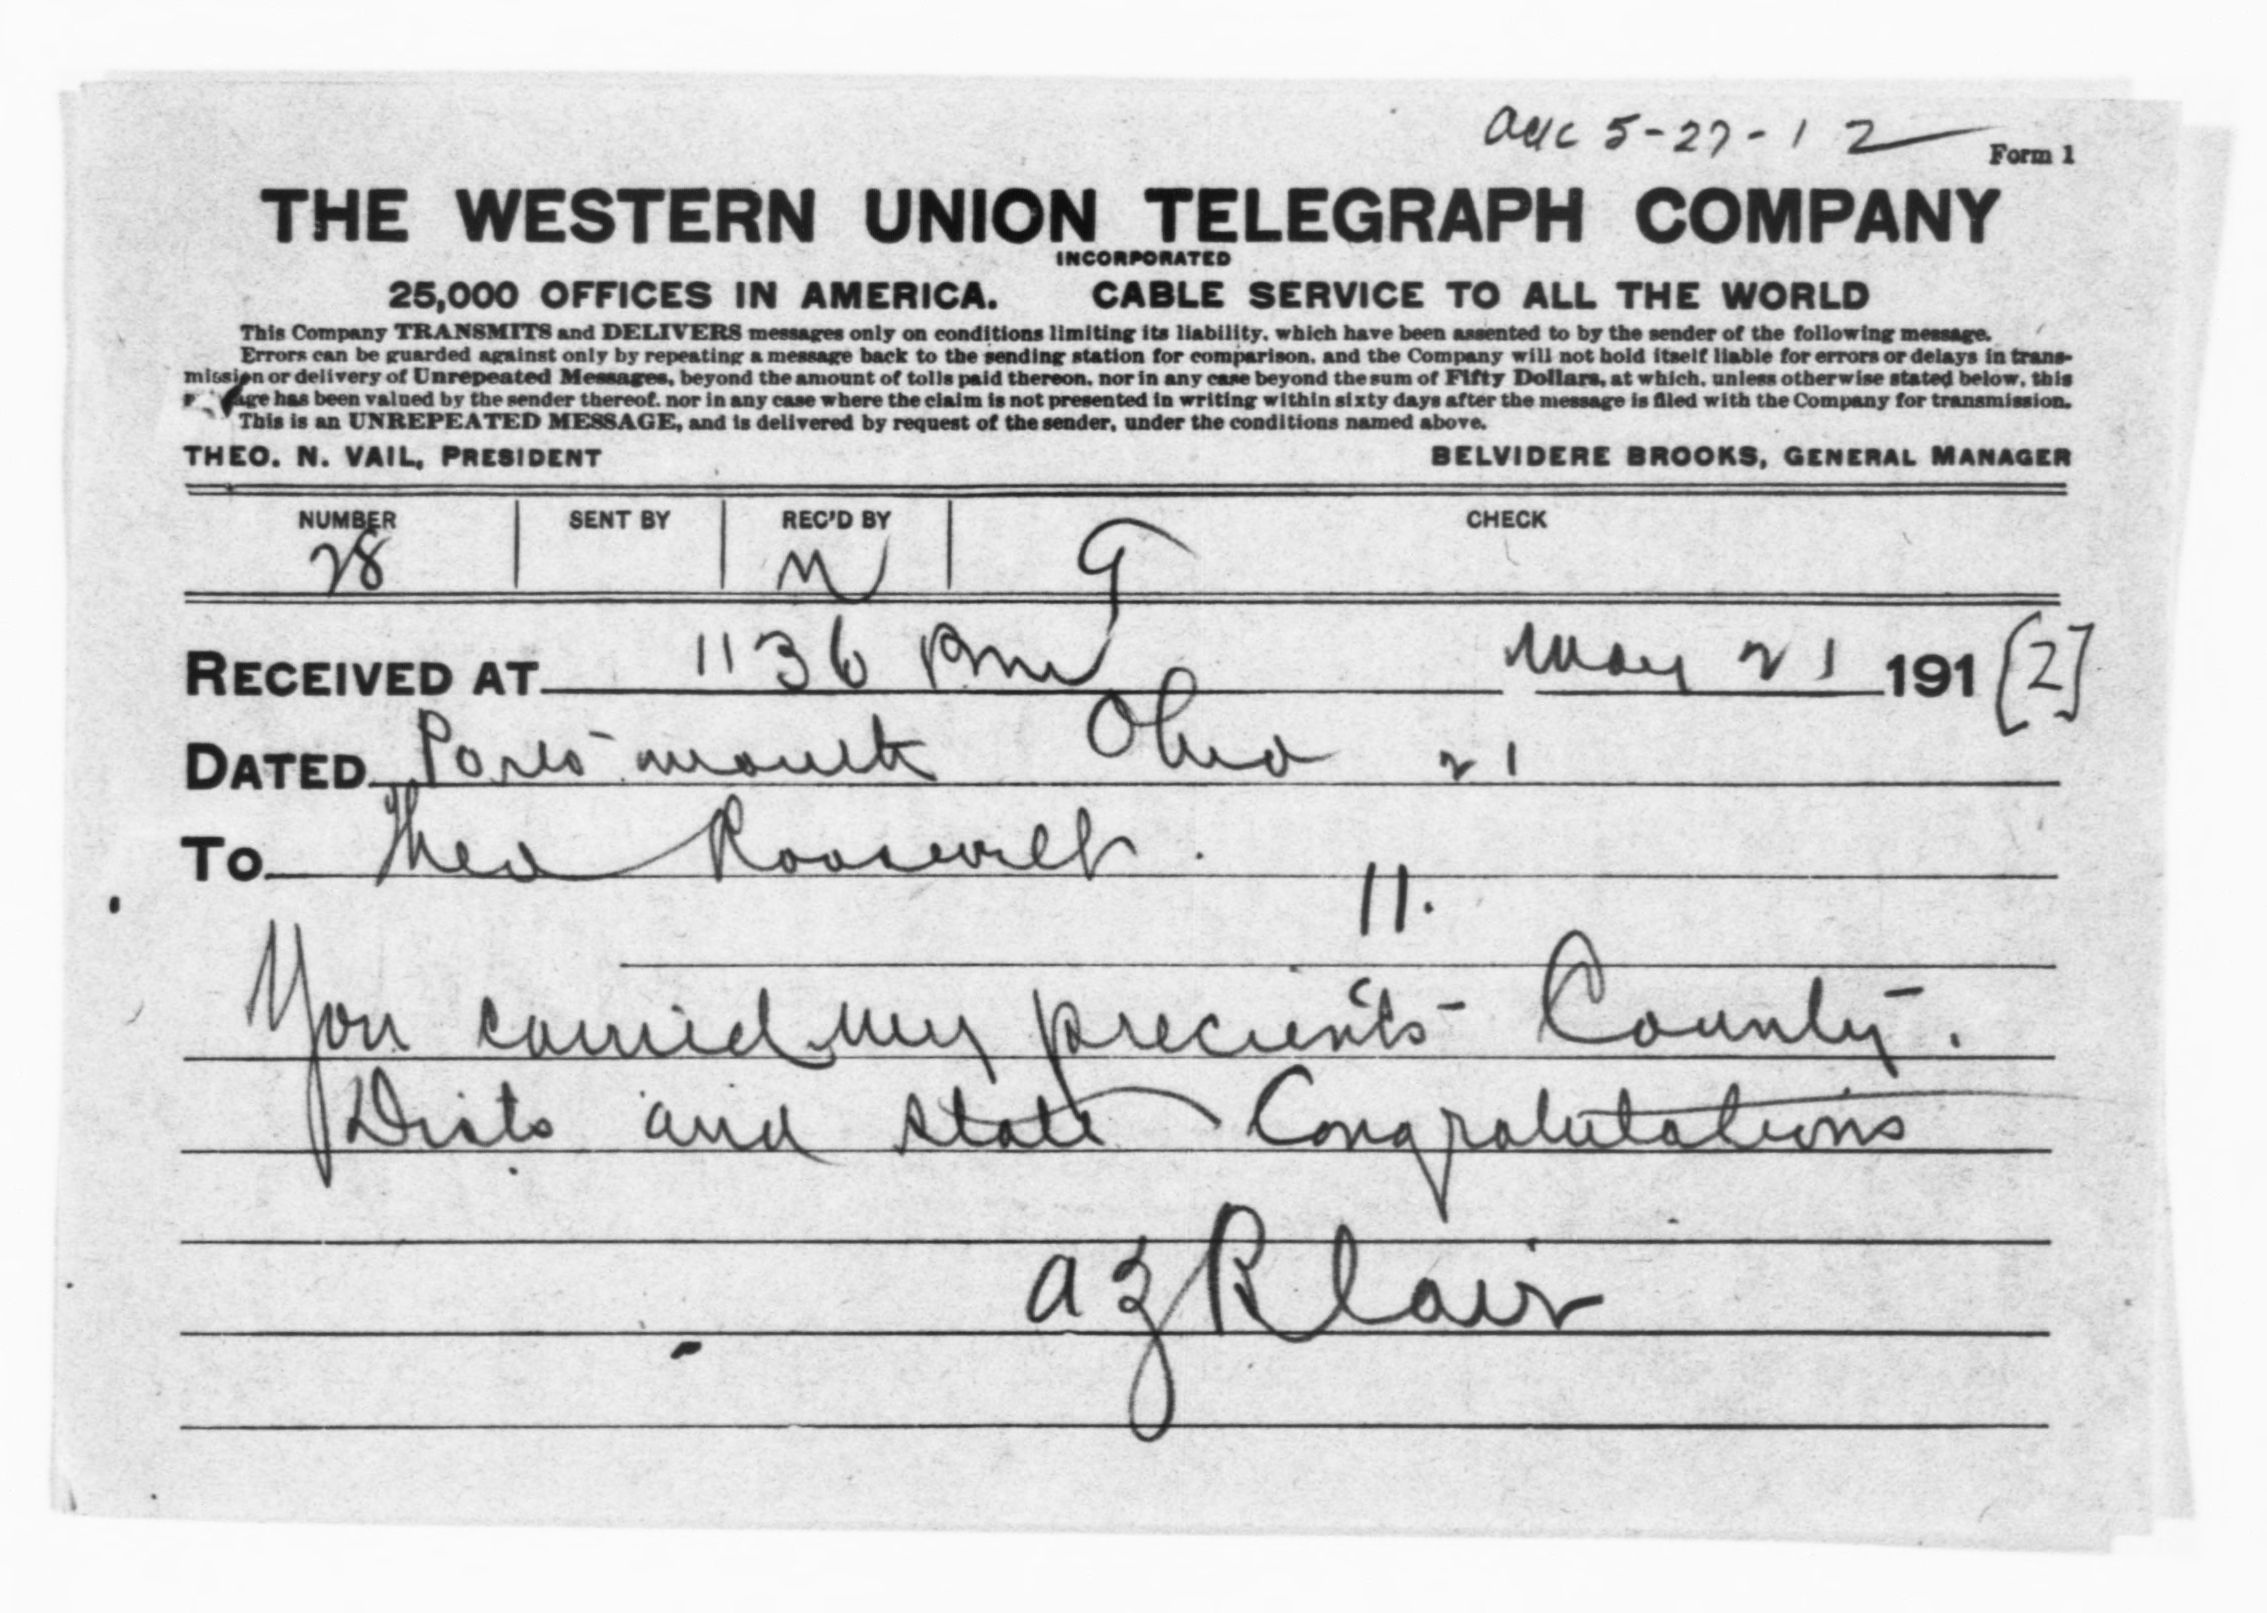 ack 5-27-12
Form 1
THE WESTERN UNION TELEGRAPH COMPANY
INCORPORATED
25,000 OFFICES IN AMERICA. CABLE SERVICE TO ALL THE WORLD
This Company TRANSMITS and DELIVERS messages only on conditions limiting its liability, which have been assented to by the sender of the following message.
Errors can be guarded against only by repeating a message back to the sending station for comparison, and the Company will not hold itself liable for errors or delays in trans-
mission or delivery of Unrepeated Messages, beyond the amount of tolls paid thereon, nor in any case beyond the sum of Fifty Dollars, at which, unless otherwise stated below, this
age has been valued by the sender thereof, nor in any case where the claim is not presented in writing within sixty days after the message is filed with the Company for transmission.
This is an UNREPEATED MESSAGE, and is delivered by request of the sender, under the conditions named above.
THEO. N. VAIL, PRESIDENT BELVIDERE BROOKS, GENERAL MANAGER
NUMBER SENT BY REC'D BY CHECK
28
RECEIVED AT 1136 Pm May 21 191[2]
DATED Portsmouth Ohio 21
TO Theo Roosevelt.
11.
You carried my precincts County.
Dists and state Congratulations
A Z Blair